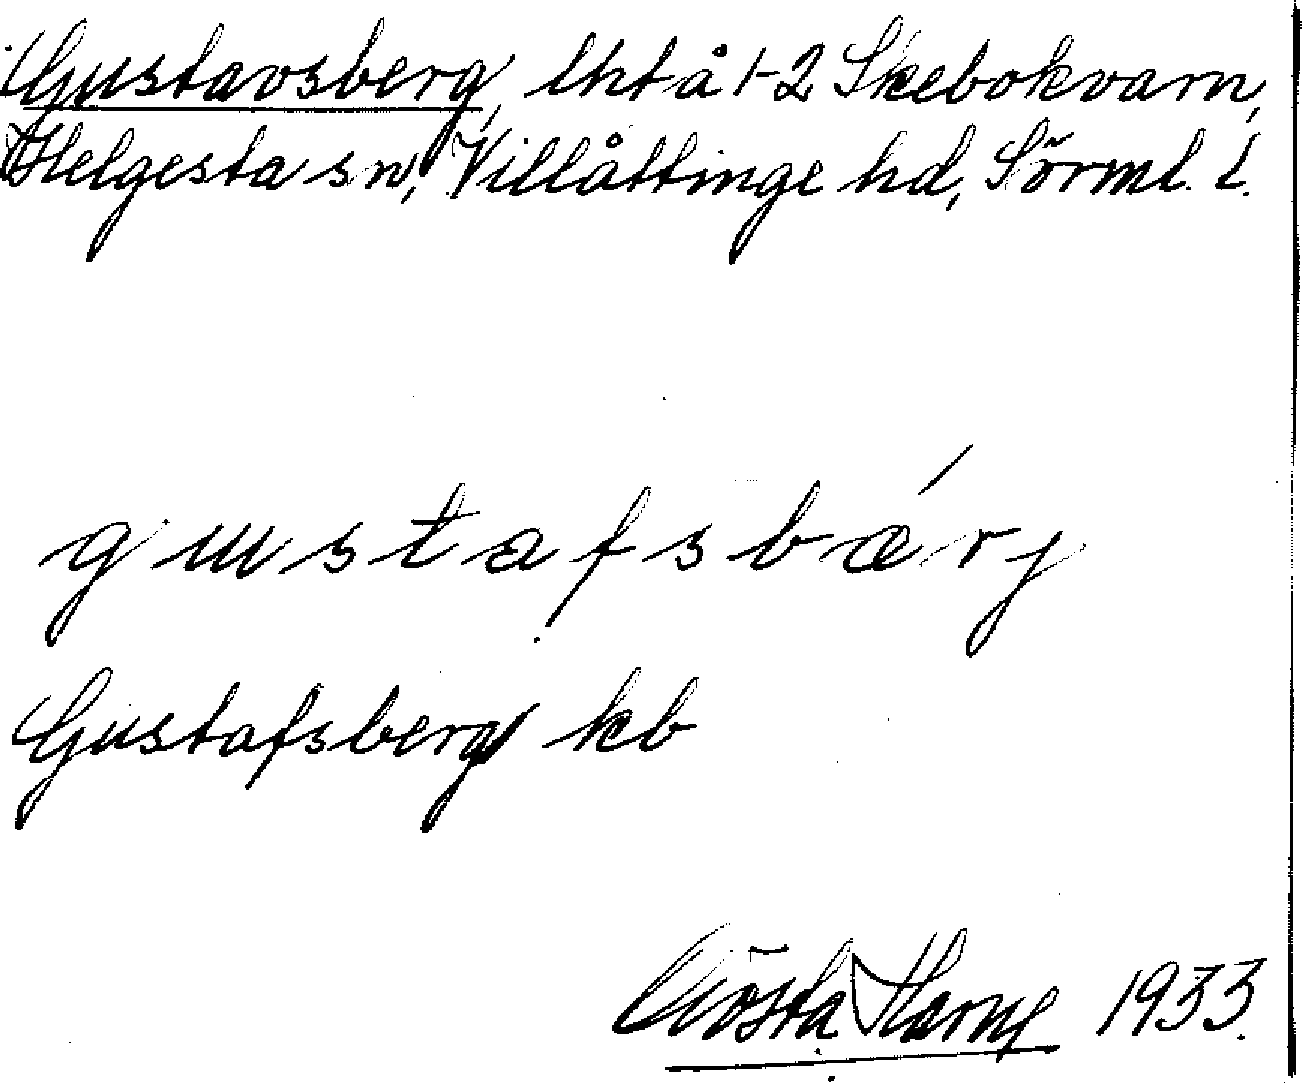 Gustavsberg, lht å 1-2 Skebokvarn,
Helgesta sn, Villåttinge hd, Sörml. l.
gustafsbærj
Gustafsberg kb
Gösta 1933.